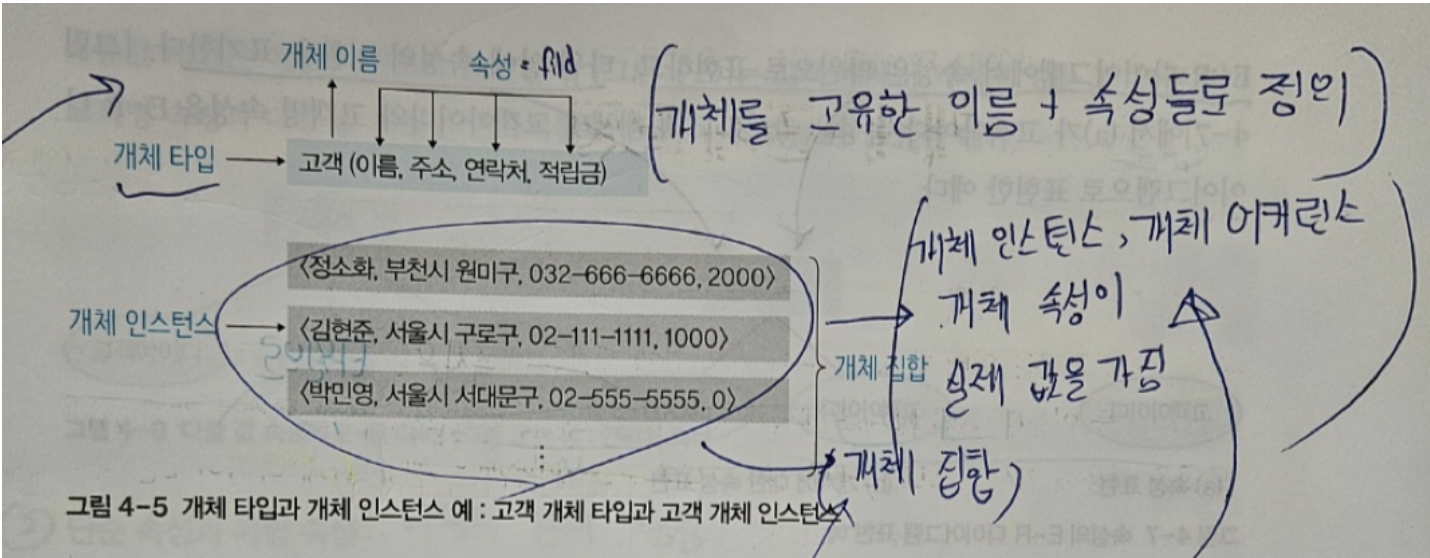 개체 이름
속성 = fild
(개체를 고유한 이름 + 속성들로 정의)
개체 타입
고객 (이름, 주소, 연락처, 적립금)
개체 인스턴스, 개체 어커런스
개체 속성이
실제 값을 가짐
<정소화, 부천시 원미구, 032-666-6666, 2000>
개체 인스턴스
<김현준, 서울시 구로구, 02-111-1111, 1000>
개체 집합
<박민영, 서울시 서대문구, 02-555-5555, 0>
⋮
(개체 집합)
그림 4-5 개체 타입과 개체 인스턴스 예 : 고객 개체 타입과 고객 개체 인스턴스